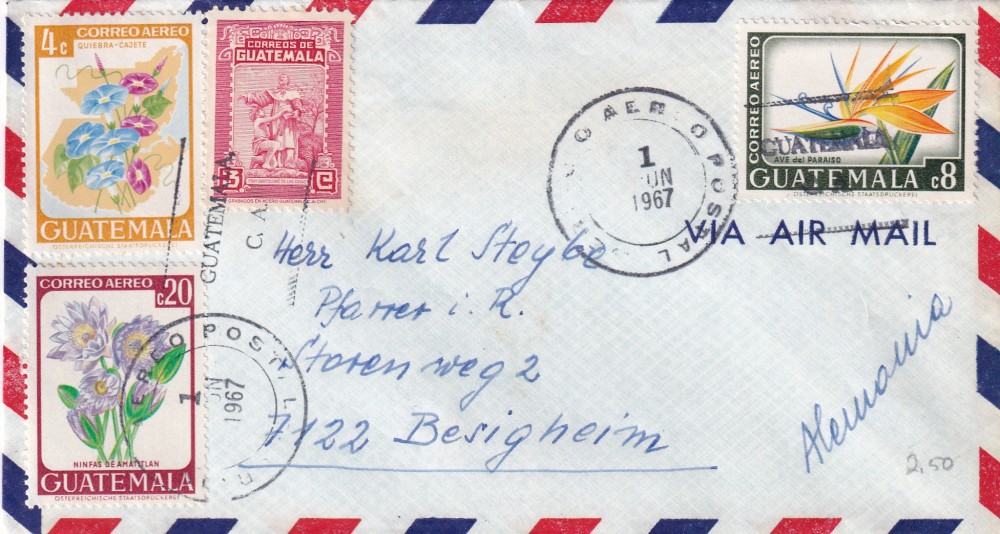 4c CORREO AEREO
QUIEBRA-CAJETE
GUATEMALA
ÖSTERREICHISCHE STAATSDRUCKEREI
CORREOS DE
GUATEMALA
3 C
FRAY BARTOLOME DE LAS CASAS
CORREO AEREO
AVE del PARAISO
GUATEMALA c8
ÖSTERREICHISCHE STAATSDRUCKEREI
GUATEMALA
GUATEMALA,
C. A.
O AEREO POSTAL
1
JUN
1967
VIA AIR MAIL
CORREO AEREO
c20
NINFAS DE AMATITLAN
GUATEMALA
ÖSTERREICHISCHE STAATSDRUCKEREI
EREO POSTAL
1
UN
1967
Herr Karl Steybe
Pfarrer i. R.
Storenweg 2
7122 Besigheim
Alemania
2,50